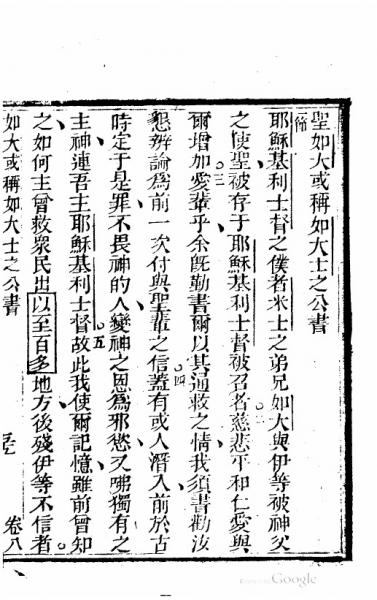 聖如大或稱如大士之公書
節
耶穌基利士督之僕者米士之弟兄如大與伊等被神父
之使聖被存于耶穌基利士督被召者慈悲平和仁愛與
爾增加愛輩乎余既勤書爾以其通救之情我須書勸汝
懇辨論為前一次付與聖輩之信蓋有或人潛入前於古
時定于是罪不畏神的人變神之恩為邪慾又咈獨有之
主神連吾主耶穌基利士督故此我使爾記憶雖前曾知
之如何主曾救衆民出以至百多地方後殘伊等不信者
如大或稱如大士之公書 卷八
二
三
四
五
Google